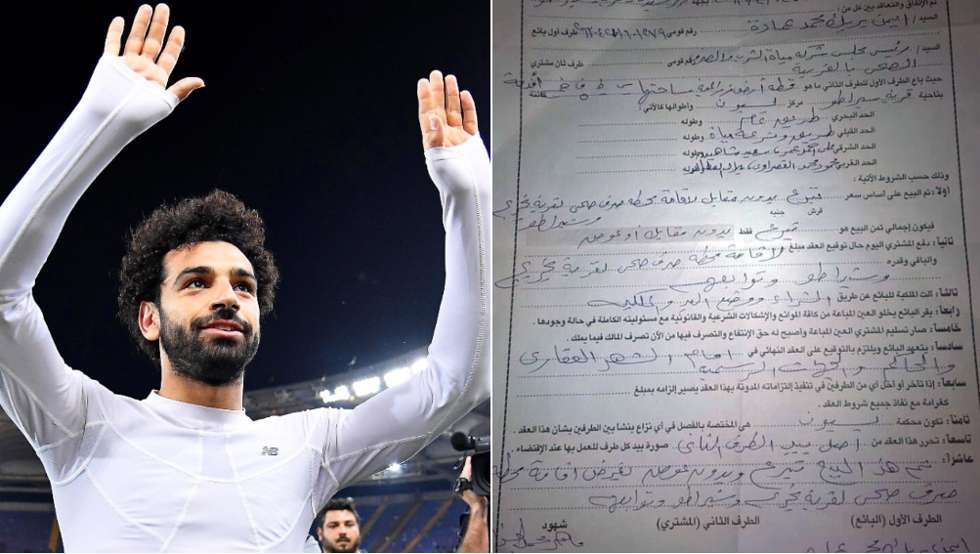 تم الاتفاق والتعاقد بين كل من :
السيد / ايمن بريك محمد عمادة رقم قومى طرف أول بائع
السيد / رئيس مجلس شركة مياه الشرب والصرف
الصحى بالغربية قومى طرف ثان مشترى
حيث باع الطرف الأول للطرف الثانى ما هو قطعة أرض مساحتها
بناحية قرية شبراطو مركز بسيون وأطوالها كالآتى :
الحد البحرى طريق عام وطوله
الحد القبلى طريق وترعة مياه وطوله
الحد الشرقى وطوله
الحد الغربى
وذلك حسب الشروط الآتية :
أولاً : تم البيع على أساس سعر تبرع بدون مقابل لاقامة محطة صرف صحى لقرية نجريج
قرش جنيه وشبراطو
فيكون إجمالى ثمن البيع هو تبرع فقط بدون مقابل أو عوض
ثانياً : دفع المشترى اليوم حال توقيع العقد مبلغ
والباقى وقدره لاقامة محطة صرف صحى لقرية نجريج
وشبراطو وتوابعها
ثالثاً : آلت الملكية للبائع عن طريق الشراء ووضع اليد والملكية
رابعاً : يقر البائع بخلو العين المباعة من كافة الموانع والإشكالات الشرعية والقانونية مع مسئوليته الكاملة فى حالة وجودها .
خامساً : صار تسليم المشترى العين المباعة وأصبح له حق الإنتفاع والتصرف فيها من الآن تصرف المالك فيما يملك .
سادساً : يتعهد البائع ويلتزم بالتوقيع على العقد النهائى فى امام الشهر العقارى
والمحاكم والجهات الرسمية
سابعاً : إذا تأخر أو أخل أى من الطرفين فى تنفيذ التزاماته المدونة بهذا العقد يصير إلزامه بمبلغ
كغرامة مع نفاذ جميع شروط العقد .
ثامناً : تكون محكمة بسيون هى المختصة بالفصل فى أى نزاع ينشأ بين الطرفين بشأن هذا العقد .
تاسعاً : تحرر هذا العقد من أصل بيد الطرف الثانى صورة بيد كل طرف للعمل بها عند الإقتضاء .
عاشراً : تم هذا البيع تبرع وبدون عوض لغرض اقامة محطة
صرف صحى لقرية نجريج وشبراطو وتوابعها
الطرف الأول (البائع) الطرف الثانى (المشترى) شهود